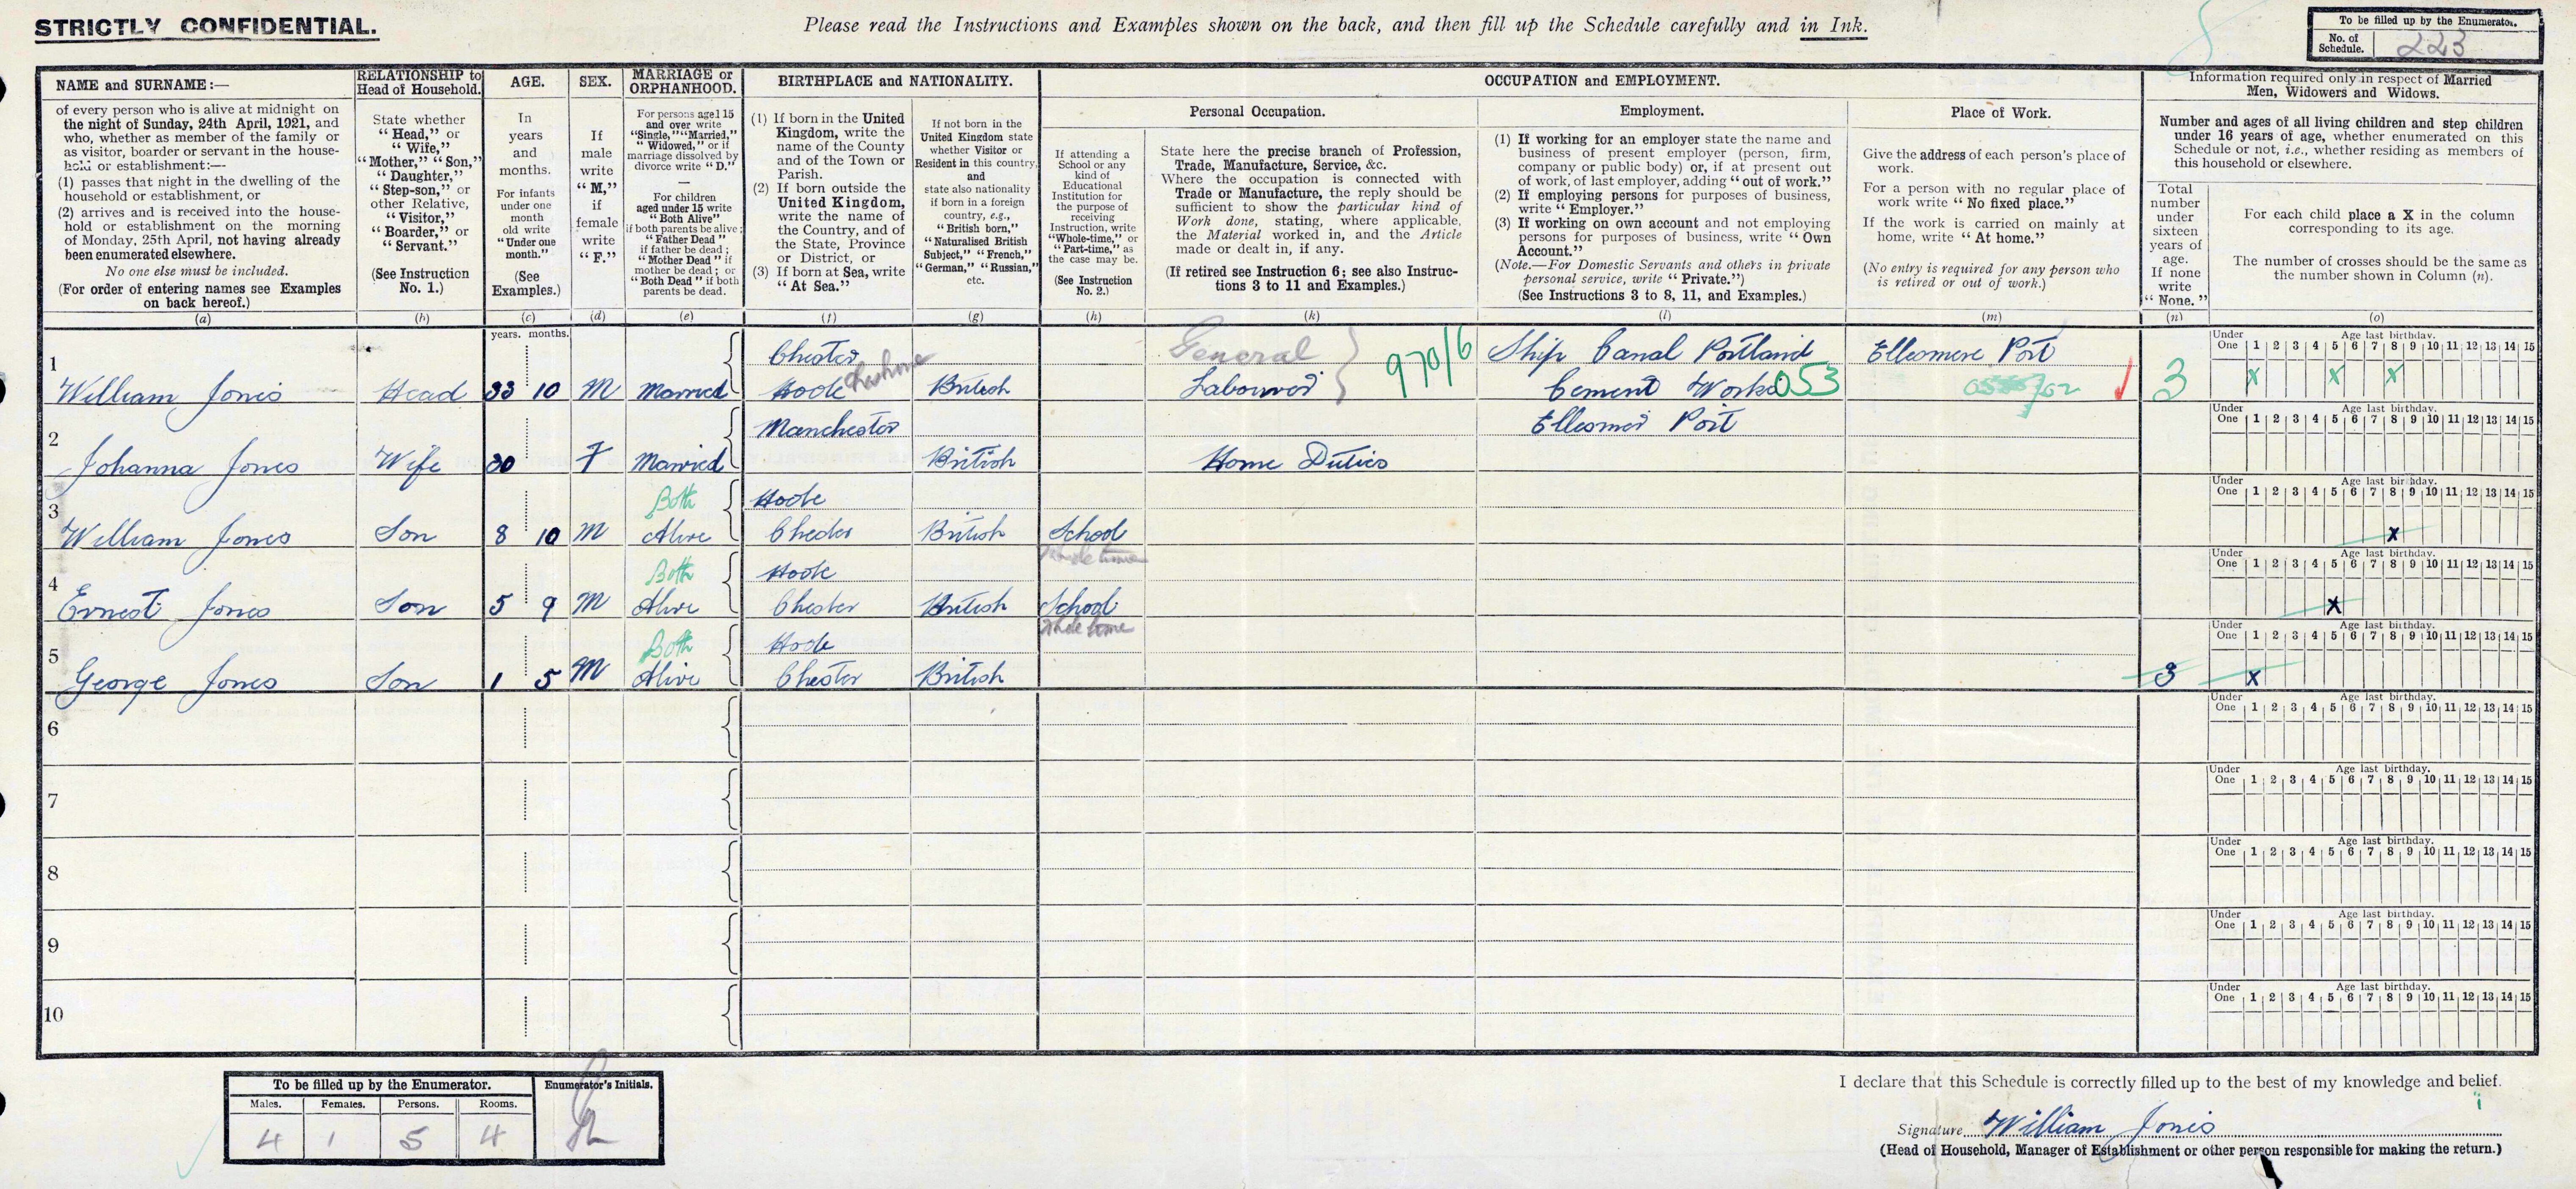 STRICTLY CONFIDENTIAL.
Please read the Instructions and Examples shown on the back, and then fill up the Schedule carefully and in Ink.
To be filled up by the Enumerator.
No. of Schedule. 223
NAME and SURNAME:—
of every person who is alive at midnight on
the night of Sunday, 24th April, 1921, and
who, whether as member of the family or
as visitor, boarder or servant in the house-
hold or establishment:—
(1) passes that night in the dwelling of the
household or establishment, or
(2) arrives and is received into the house-
hold or establishment on the morning
of Monday, 25th April, not having already
been enumerated elsewhere.
No one else must be included.
(For order of entering names see Examples
on back hereof.)
(a)
RELATIONSHIP to
Head of Household.
State whether
"Head," or
"Wife,"
"Mother," "Son,"
"Daughter,"
"Step-son," or
other Relative,
"Visitor,"
"Boarder," or
"Servant."
(See Instruction
No. 1.)
(b)
AGE.
In
years
and
months.
For infants
under one
month
old write
"Under one
month."
(See
Examples.)
(c)
SEX.
If
male
write
"M,"
if
female
write
"F."
(d)
MARRIAGE or
ORPHANHOOD.
For persons aged 15
and over write
"Single," "Married,"
"Widowed," or if
marriage dissolved by
divorce write "D."
—
For children
aged under 15 write
"Both Alive"
if both parents be alive;
"Father Dead"
if father be dead;
"Mother Dead" if
mother be dead; or
"Both Dead" if both
parents be dead.
(e)
BIRTHPLACE and NATIONALITY.
(1) If born in the United
Kingdom, write the
name of the County
and of the Town or
Parish.
(2) If born outside the
United Kingdom,
write the name of
the Country, and of
the State, Province
or District, or
(3) If born at Sea, write
"At Sea."
(f)
If not born in the
United Kingdom state
whether Visitor or
Resident in this country,
and
state also nationality
if born in a foreign
country, e.g.,
"British born,"
"Naturalised British
Subject," "French,"
"German," "Russian,"
etc.
(g)
OCCUPATION and EMPLOYMENT.
If attending a
School or any
kind of
Educational
Institution for
the purpose of
receiving
Instruction, write
"Whole-time," or
"Part-time," as
the case may be.
(See Instruction
No. 2.)
(h)
Personal Occupation.
State here the precise branch of Profession,
Trade, Manufacture, Service, &c.
Where the occupation is connected with
Trade or Manufacture, the reply should be
sufficient to show the particular kind of
Work done, stating, where applicable,
the Material worked in, and the Article
made or dealt in, if any.
(If retired see Instruction 6; see also Instruc-
tions 3 to 11 and Examples.)
(k)
Employment.
(1) If working for an employer state the name and
business of present employer (person, firm,
company or public body) or, if at present out
of work, of last employer, adding "out of work."
(2) If employing persons for purposes of business,
write "Employer."
(3) If working on own account and not employing
persons for purposes of business, write "Own
Account."
(Note.—For Domestic Servants and others in private
personal service, write "Private.")
(See Instructions 3 to 8, 11, and Examples.)
(l)
Place of Work.
Give the address of each person's place of
work.
For a person with no regular place of
work write "No fixed place."
If the work is carried on mainly at
home, write "At home."
(No entry is required for any person who
is retired or out of work.)
(m)
Information required only in respect of Married
Men, Widowers and Widows.
Number and ages of all living children and step children
under 16 years of age, whether enumerated on this
Schedule or not, i.e., whether residing as members of
this household or elsewhere.
Total
number
under
sixteen
years of
age.
If none
write
"None."
(n)
For each child place a X in the column
corresponding to its age.
The number of crosses should be the same as
the number shown in Column (n).
(o)
years. months.
Under One Age last birthday. 1 2 3 4 5 6 7 8 9 10 11 12 13 14 15
1
Chester General 970/6 Ship Canal Portland Ellesmere Port
William Jones Head 33 10 M Married Hoole Cheshire British Labourer Cement Works 053 3 X X X
Under One Age last birthday. 1 2 3 4 5 6 7 8 9 10 11 12 13 14 15
2
Manchester Ellesmere Port
Johanna Jones Wife 30 F Married British Home Duties
Under One Age last birthday. 1 2 3 4 5 6 7 8 9 10 11 12 13 14 15
3
Both Hoole
William Jones Son 8 10 M Alive Chester British School X
Whole time
Under One Age last birthday. 1 2 3 4 5 6 7 8 9 10 11 12 13 14 15
4
Both Hoole
Ernest Jones Son 5 9 M Alive Chester British School X
Whole time
Under One Age last birthday. 1 2 3 4 5 6 7 8 9 10 11 12 13 14 15
5
Both Hoole
George Jones Son 1 5 M Alive Chester British 3 X
Under One Age last birthday. 1 2 3 4 5 6 7 8 9 10 11 12 13 14 15
6
Under One Age last birthday. 1 2 3 4 5 6 7 8 9 10 11 12 13 14 15
7
Under One Age last birthday. 1 2 3 4 5 6 7 8 9 10 11 12 13 14 15
8
Under One Age last birthday. 1 2 3 4 5 6 7 8 9 10 11 12 13 14 15
9
Under One Age last birthday. 1 2 3 4 5 6 7 8 9 10 11 12 13 14 15
10
To be filled up by the Enumerator.
Males. Females. Persons. Rooms.
4 1 5 4
Enumerator's Initials.
I declare that this Schedule is correctly filled up to the best of my knowledge and belief.
Signature William Jones
(Head of Household, Manager of Establishment or other person responsible for making the return.)